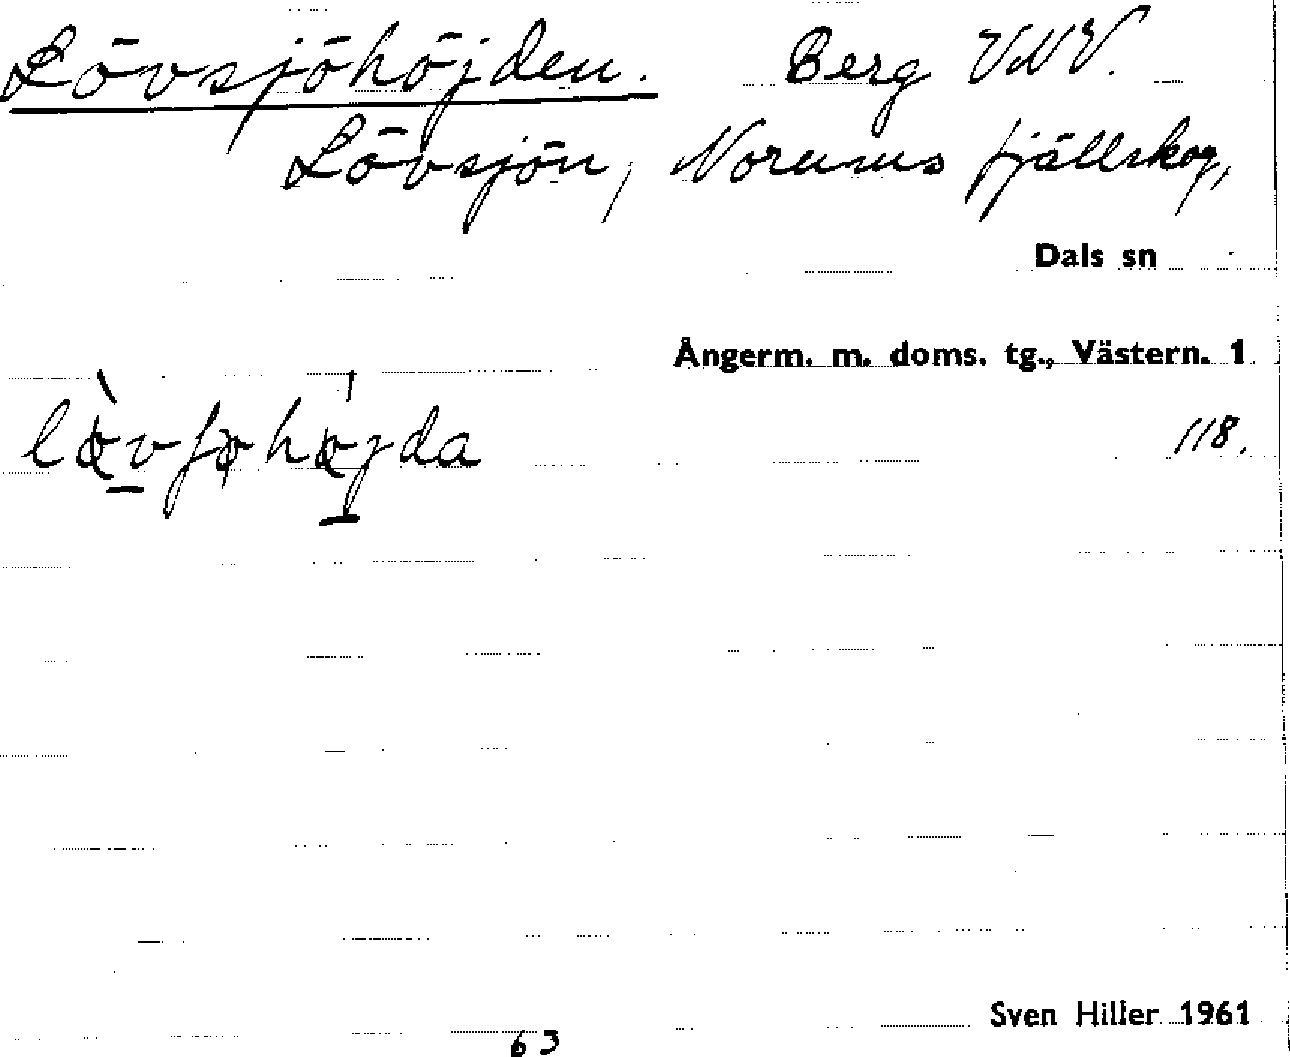 Lövsjöhöjden. Berg VNV.
Lövsjön, Norums fjällskog,
Dals sn
Ångerm. m. doms. tg., Västern. 1
118.
Sven Hiller 1961
63